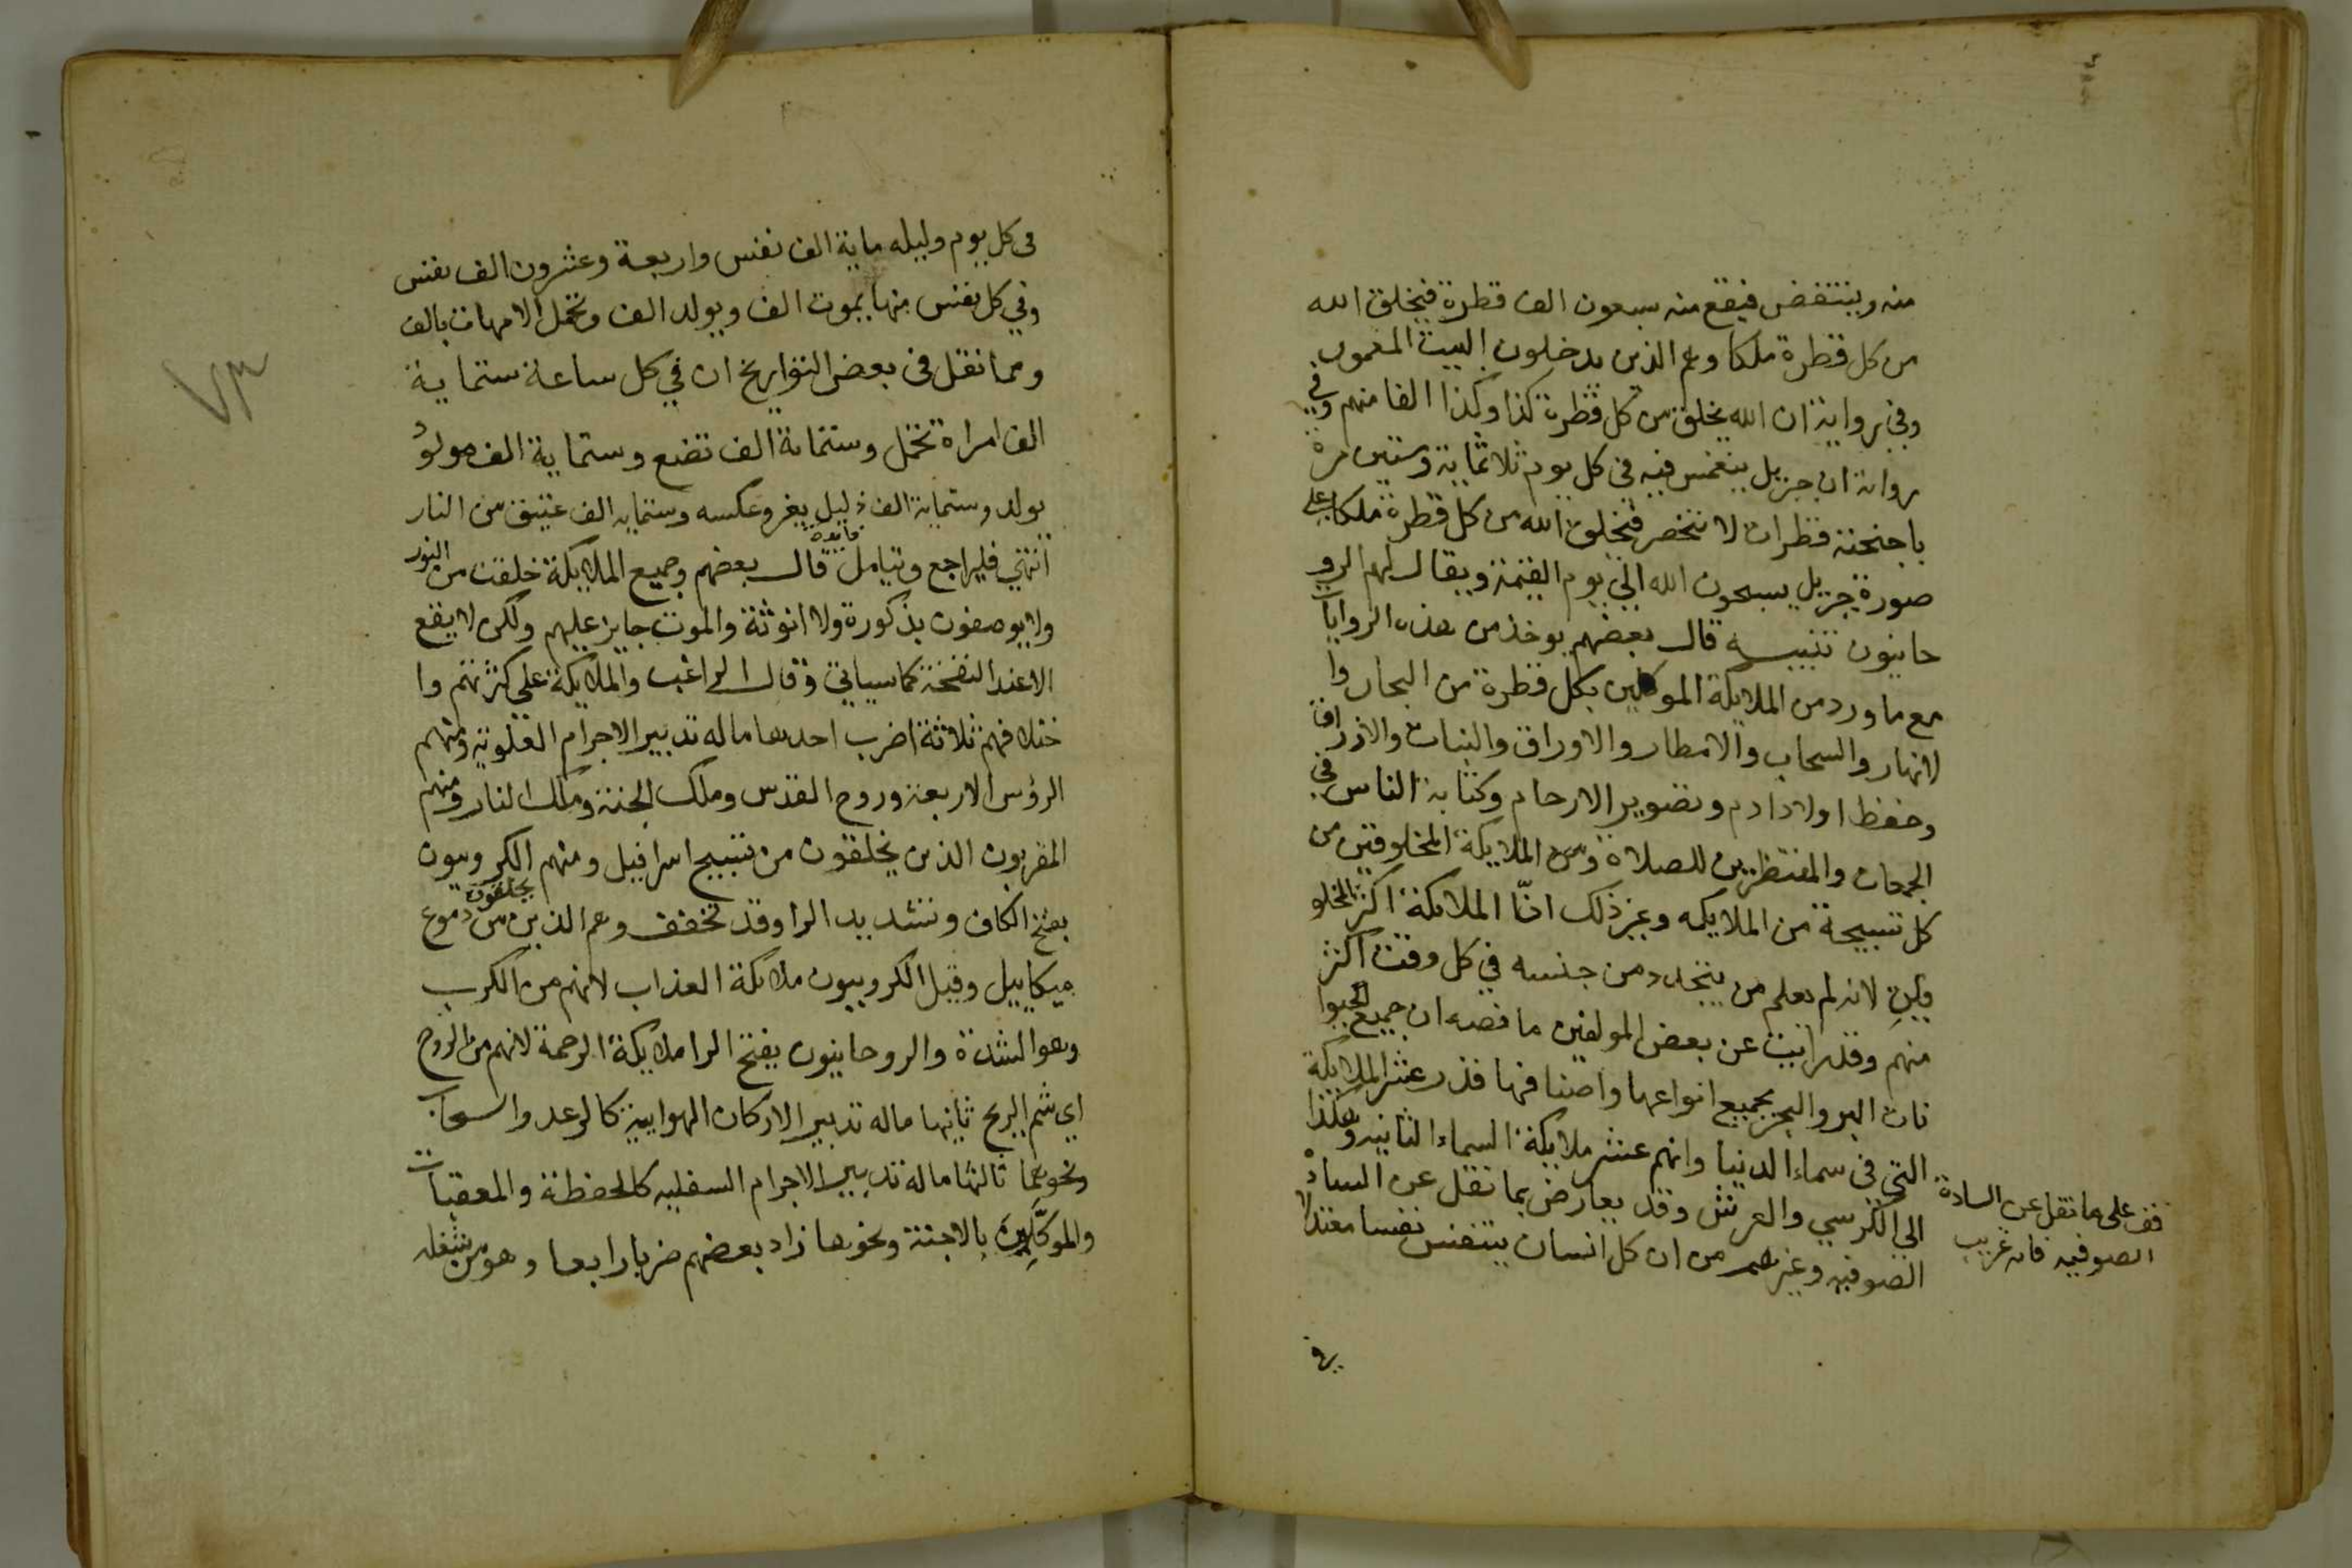 منه وينتفض فيقع منه سبعون الف قطرة فيخلق الله
من كل قطرة ملكا وهم الذين يدخلون البيت المعمور
وفي رواية ان الله يخلق من كل قطرة كذا وكذا الفا منهم وفي
رواية ان جبريل ينغمس فيه في كل يوم ثلاثماية وستين مرة
باجنحته قطرات لا تنحصر فيخلق الله من كل قطرة ملكا على
صورة جبريل يسبحون الله الى يوم القيمة ويقال لهم الرو
حانيون تنبيه قال بعضهم يوخذ من هذه الروايات
مع ما ورد من الملايكة الموكلين بكل قطرة من البحار وا
لانهار والسحاب والامطار والاوراق والنبات والارزاق
وحفظ اولاد ادم وتصوير الارحام وكتابة الناس في
الجمعات والمنتظرين للصلاة ومن الملايكة المخلوقين من
كل تسبيحة من الملايكه وغير ذلك انّ الملائكة اكثر المخلو
قين لانه لم يعلم من يتجدد من جنسه في كل وقت اكثر
منهم وقد رايت عن بعض المولفين ما نصه ان جميع الحيوا
نات البر والبحر بجميع انواعها واصنافها قدر عشر الملايكة
التي في سماء الدنيا وانهم عشر ملايكة السماء الثانيه وهكذا
الى الكرسي والعرش وقد يعارض بما نقل عن السادة
الصوفيه وغيرهم من ان كل انسان يتنفس نفسا معتدلا
قف على ما نقل عن السادة
الصوفيه فانه غريب
في
في كل يوم وليله ماية الف نفس واربعة وعشرون الف نفس
وفي كل نفس منها يموت الف ويولد الف وتحمل الامهات بالف
ومما نقل في بعض التواريخ ان في كل ساعة ستماية
الف امراة تحمل وستماية الف تضع وستماية الف مولود
يولد وستماية الف ذليل يعز وعكسه وستمايه الف عتيق من النار
انتهي فليراجع وتيامل فايدة قال بعضهم وجميع الملايكة خلقت من النور
ولا يوصفون بذكورة ولا انوثة والموت جايز عليهم ولكن لا يقع
الا عند النفخة كما سياتي وقال الراغب والملايكة على كثرتهم وا
ختلافهم ثلاثة اضرب احدها ماله تدبير الاجرام العلويه ومنهم
الرؤس الاربعة وروح القدس وملك الجنة وملك النار ومنهم
المقربون الذين يخلقون من تسبيح اسرافيل ومنهم الكروبيون
بفتح الكاف وتشديد الرا وقد تخفف وهم الذين يخلقون من دموع
ميكاييل وقيل الكروبيون ملائكة العذاب لانهم من الكرب
وهو الشدة والروحانيون بفتح الرا ملايكة الرحمة لانهم من الروح
اي شم الريح ثانيها ماله تدبير الاركان الهوايية كالرعد والسحاب
ونحوهما ثالثها ماله تدبير الاجرام السفليه كالحفظة والمعقبات
والموكّلين بالاجنة ونحوها زاد بعضهم ضربا رابعا وهو من شغله
٧٣